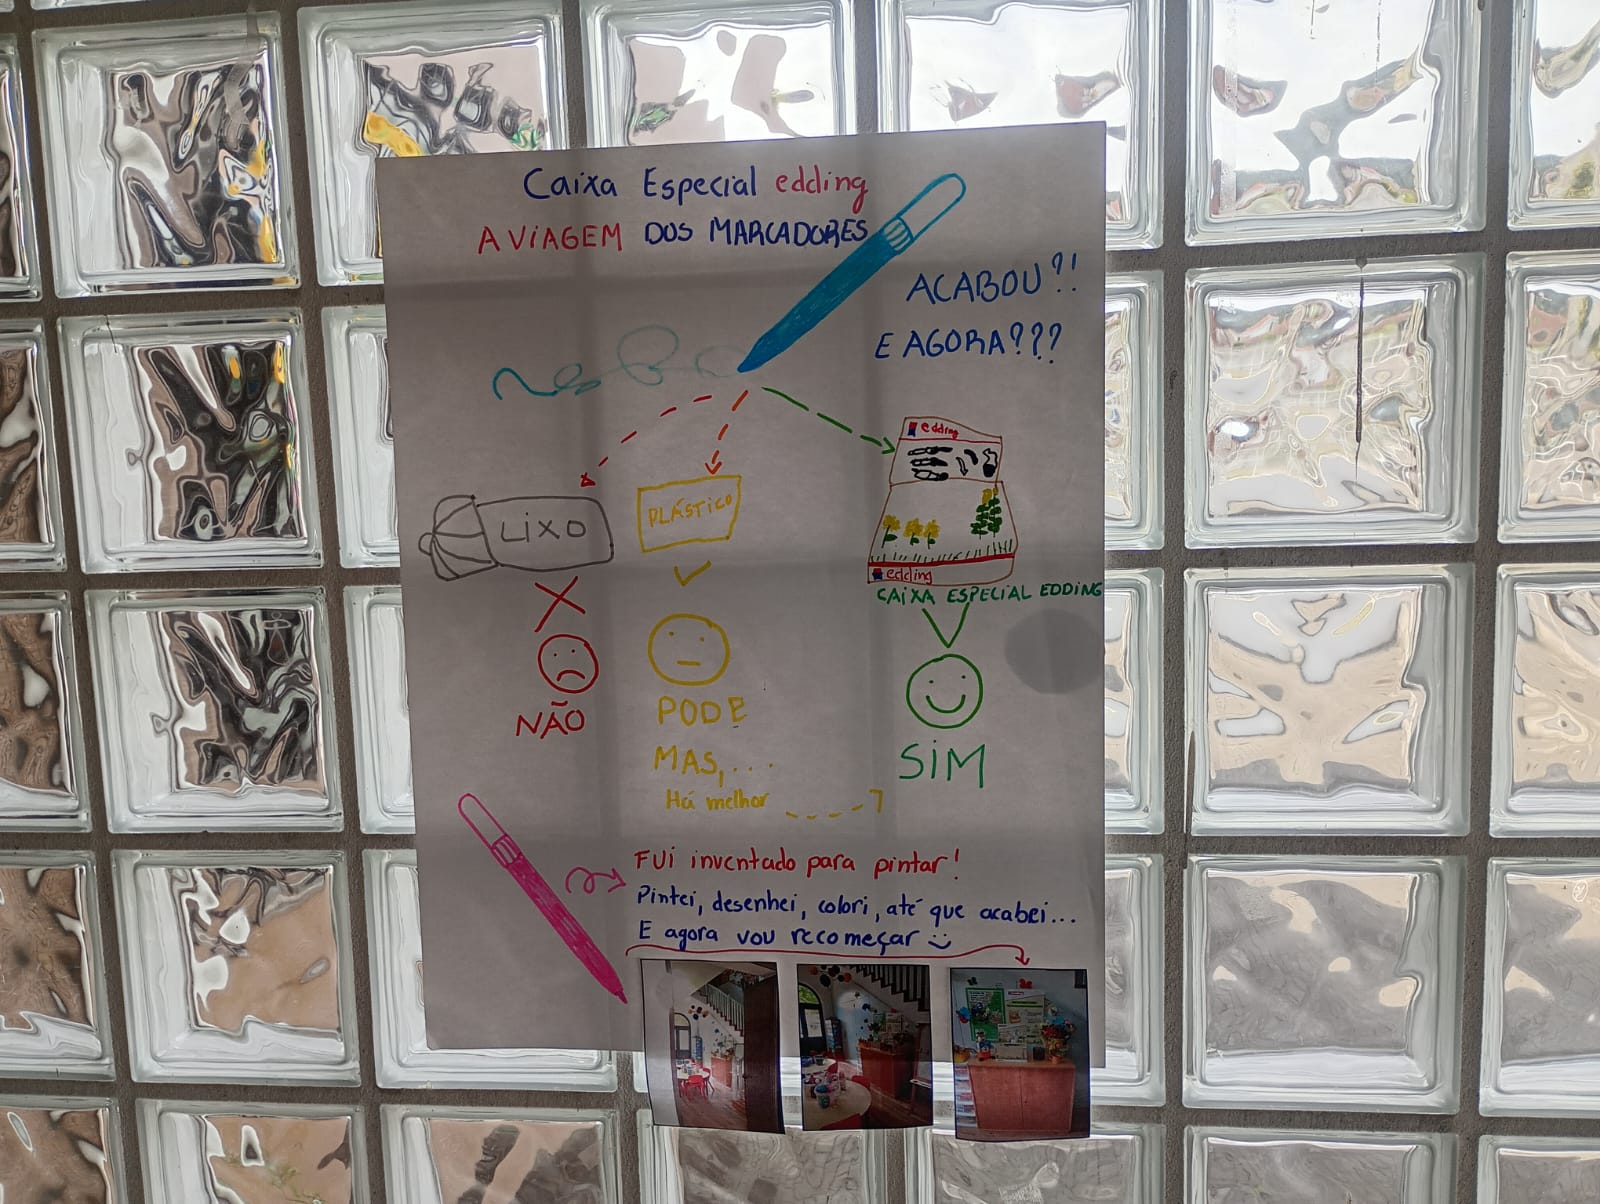 Caixa Especial edding
A VIAGEM DOS MARCADORES
ACABOU?!
E AGORA???
edding
LIXO
PLÁSTICO
edding
CAIXA ESPECIAL EDDING
NÃO
PODE
MAS,...
Há melhor
SIM
FUI inventado para pintar!
Pintei, desenhei, colori, até que acabei...
E agora vou recomeçar